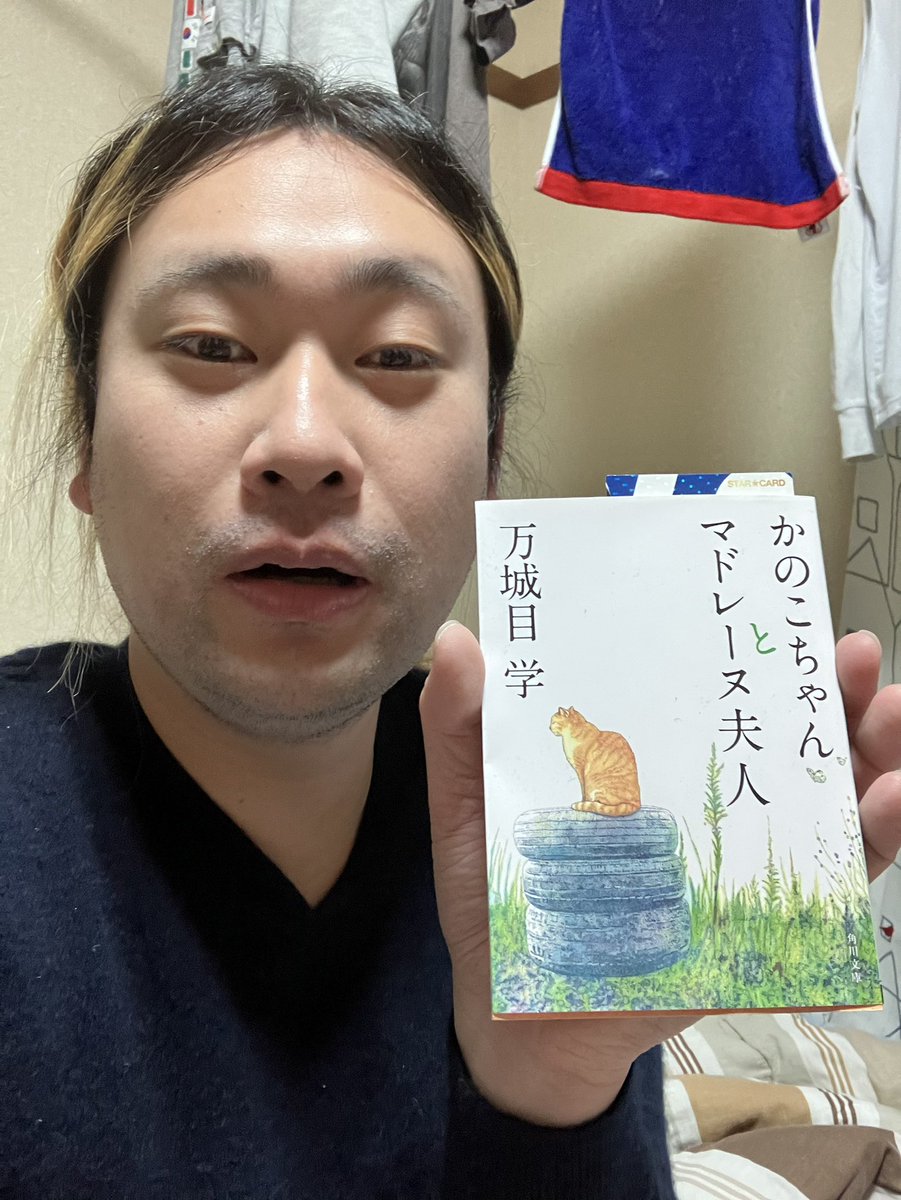 STAR★CARD
かのこちゃん
と
マドレーヌ夫人
万城目 学
角川文庫